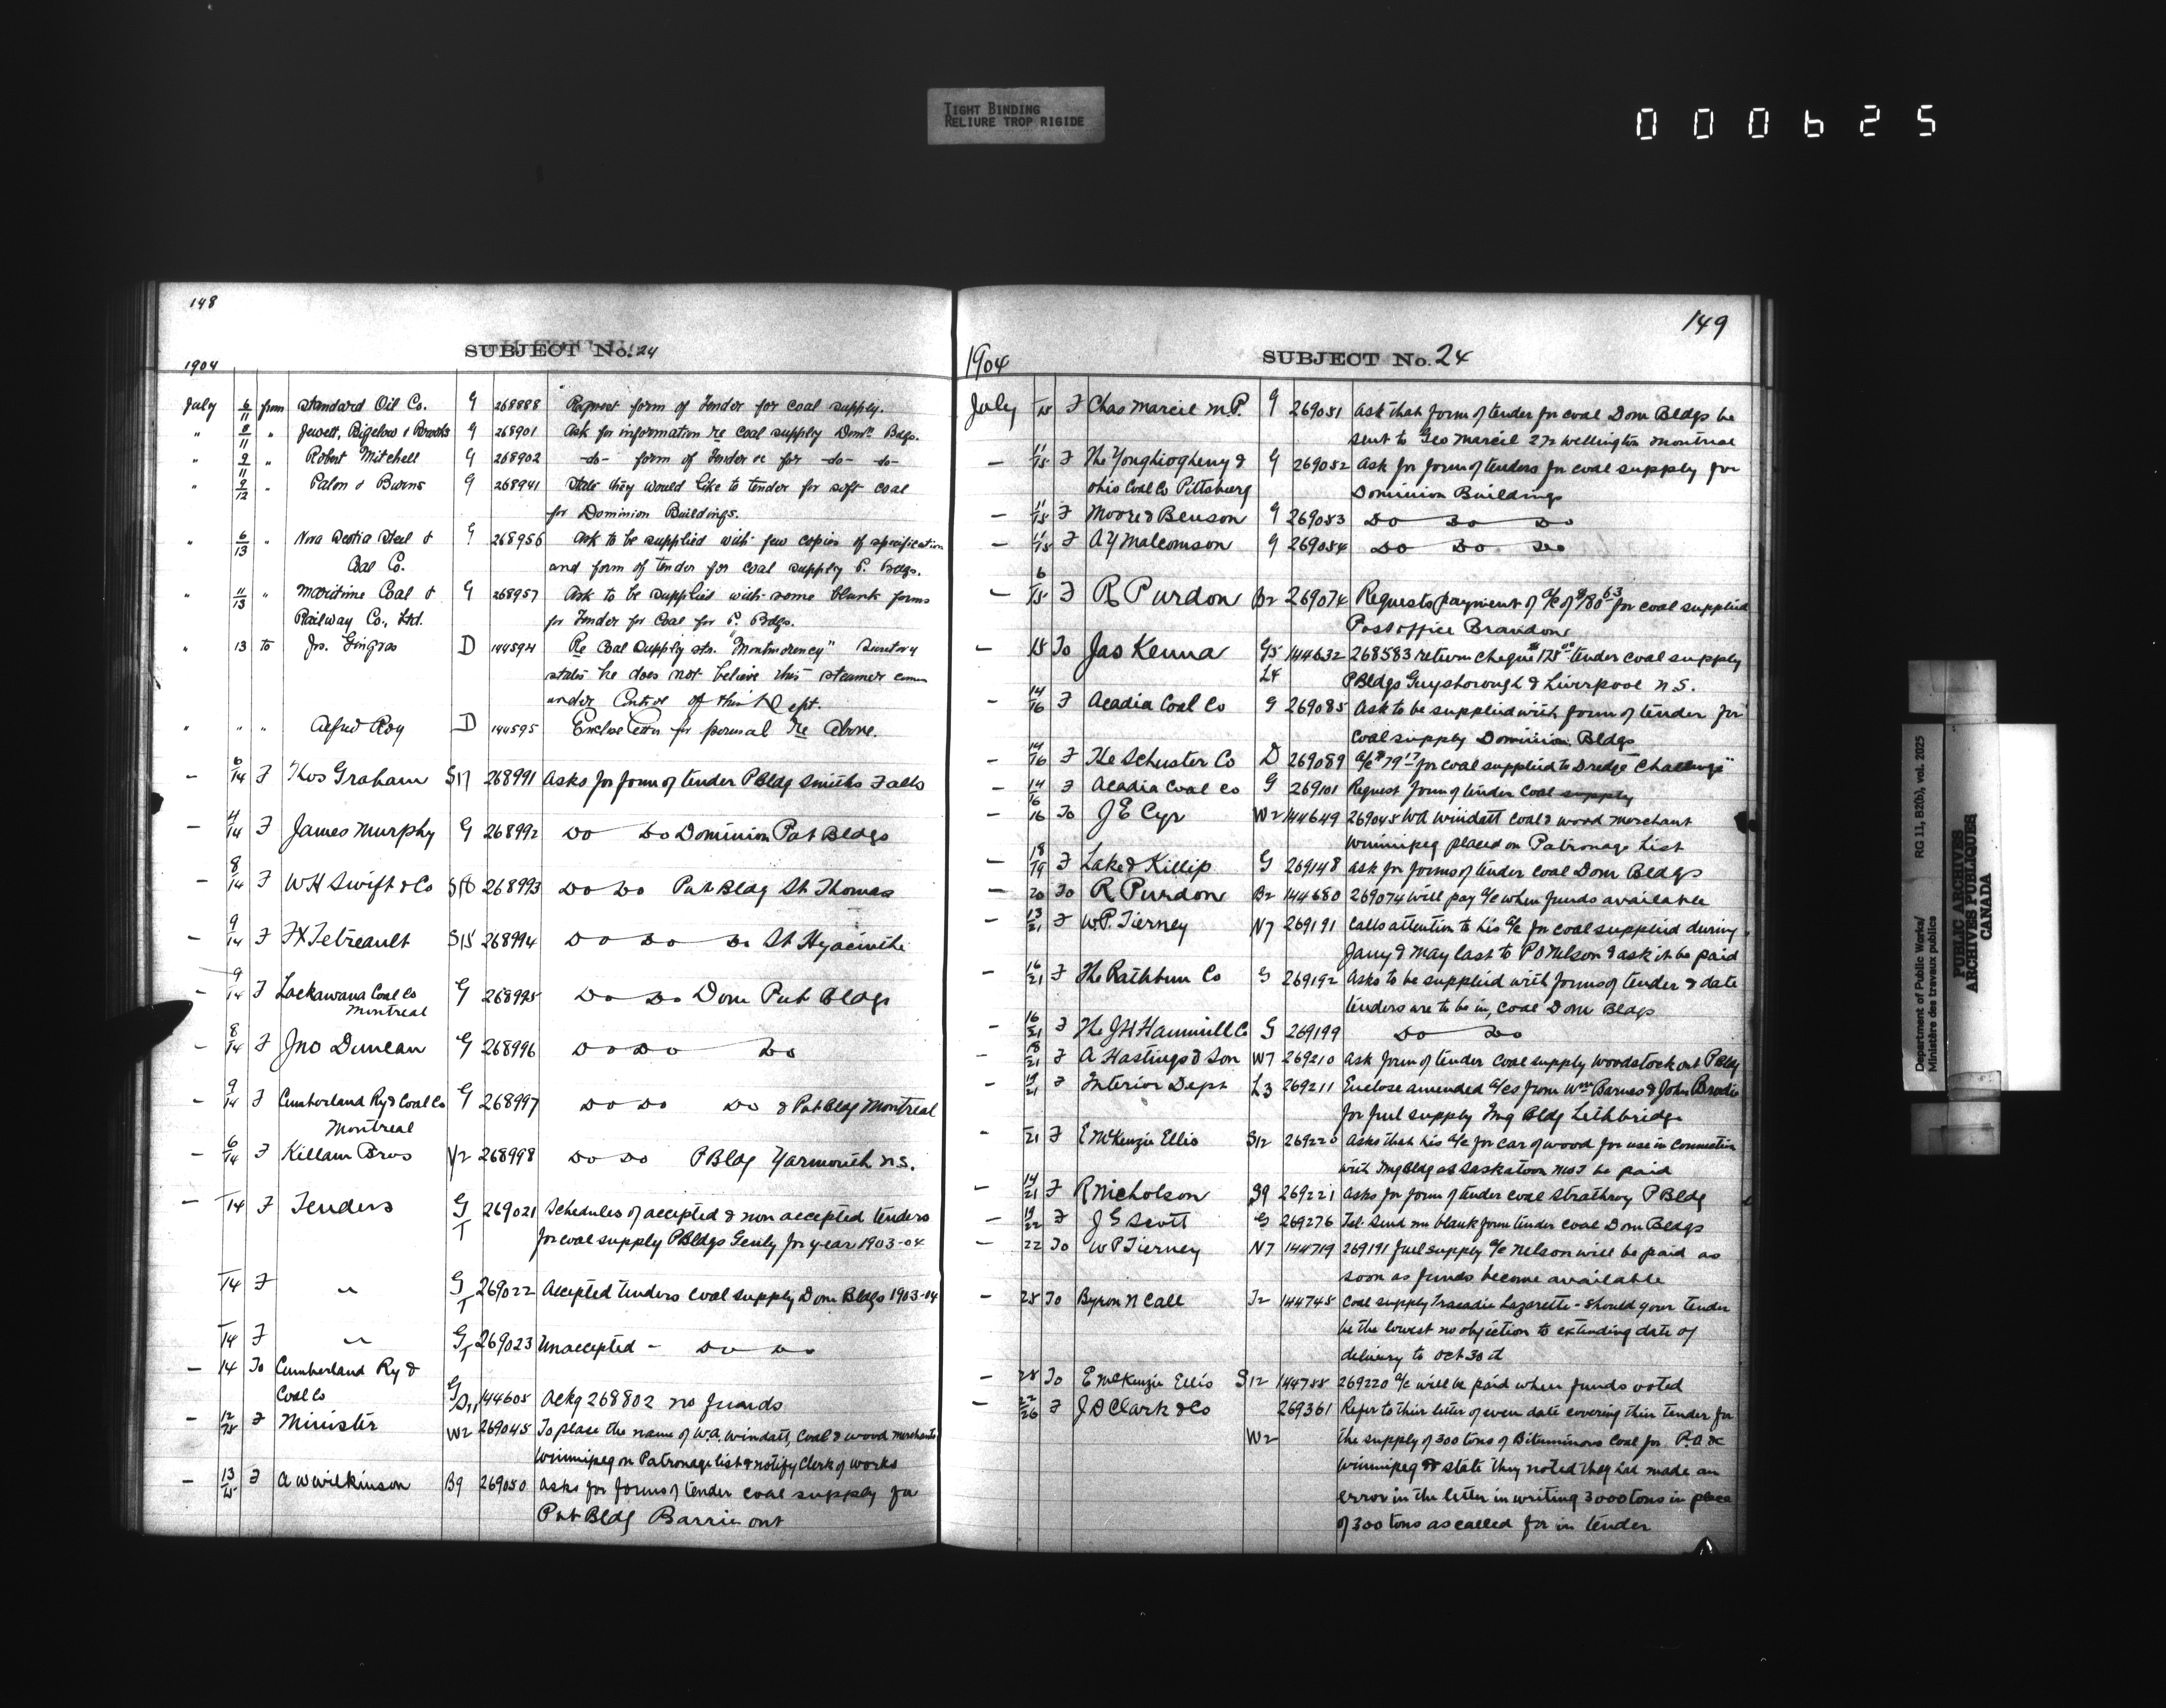 TIGHT BINDING
RELIURE TROP RIGIDE
000625
148
SUBJECT No. 24
1904
July 6/11 from Standard Oil Co. G 268888 Request form of Tender for coal supply.
" 8/11 " Jewett, Bigelow & Brooks G 268901 Ask for information re coal supply Domn. Bdgs.
" 9/11 " Robert Mitchell G 268902 -do- form of Tender &c for -do- -do-
" 9/12 " Palon & Burns G 268941 State they would like to tender for soft coal
for Dominion Buildings.
" 6/13 " Nova Scotia Steel & G 268956 Ask to be supplied with few copies of specification
Coal Co. and form of tender for coal supply P. Bdgs.
" 11/13 " Maritime Coal & G 268957 Ask to be supplied with some blank forms
Railway Co., Ltd. for Tender for Coal for P. Bdgs.
" 13 to Js. Gingras D 144594 Re Coal Supply str. "Montmorency" Secretary
states he does not believe this steamer comes
under Control of this Dept.
" " " Alfred Roy D 144595 Enclose letter for perusal Re Above.
— 6/14 F Thos Graham S17 268991 Asks for form of tender P Bldg Smiths Falls
— 4/14 F James Murphy G 268992 Do Do Dominion Pub Bldgs
— 8/14 F WH Swift & Co 268993 Do Do Pub Bldg St Thomas
— 9/14 F FX Tetreault S15 268994 Do Do Do St Hyacinthe
— 9/14 F Lackawana Coal Co G 268995 Do Do Dom Pub Bldgs
Montreal
— 8/14 F Jno Duncan G 268996 Do Do Do
— 9/14 F Cumberland Ry & Coal Co G 268997 Do Do Do & Pub Bldg Montreal
Montreal
— 6/14 F Killam Bros Y2 268998 Do Do P Bldg Yarmouth N.S.
— /14 F Tenders G 269021 Schedules of accepted & non accepted tenders
T for coal supply P Bldgs Genly for year 1903-04
/14 F " G T 269022 Accepted tenders coal supply Dom Bldgs 1903-04
/14 F " G T 269023 Unaccepted - Do Do
— 14 To Cumberland Ry &
Coal Co G 144605 Ackg 268802 no funds
— 12/15 F Minister W2 269045 To place the name of W.A. Windatt, Coal & wood merchant
Winnipeg on Patronage list & notify Clerk of works
— 13/15 F A W Wilkinson B9 269050 Asks for forms of tender coal supply for
Pub Bldg Barrie ont
149
1904 SUBJECT No. 24
July /15 F Chas Marcil M.P. G 269051 Ask that form of tender for coal Dom Bldgs be
sent to Geo Marcil 272 Wellington Montreal
— 11/15 F The Yonghiogheny & G 269052 Ask for form of tenders for coal supply for
Ohio Coal Co Pittsburg Dominion Buildings
— 11/15 F Moore & Benson G 269053 Do Do Do
— 11/15 F A Y Malcomson G 269054 Do Do Do
— 6/15 F R Purdon B2 269074 Requests payment of a/c of $180.63 for coal supplied
Post office Brandon
— 15 To Jas Kenna G5 144632 268583 return cheque $175.00 tender coal supply
L4 P Bldgs Guysborough & Liverpool N.S.
— 14/16 F Acadia Coal Co G 269085 Ask to be supplied with form of tender for
coal supply Dominion Bldgs
— 14/16 F The Schuster Co D 269089 a/c $79.17 for coal supplied to Dredge Challenge"
— 14/16 F Acadia Coal Co G 269101 Request form of tender Coal supply
— 16 To J E Cyr W2 144649 269045 WA Windatt Coal & wood merchant
Winnipeg placed on Patronage List
— 18/19 F Lake & Killip G 269148 ask for forms of tender coal Dom Bldgs
— 20 To R Purdon B2 144680 269074 will pay a/c when funds available
— 13/21 F W.P. Tierney N7 269191 Calls attention to his a/c for coal supplied during
Jany & May last to P O Nelson & ask it be paid
— 16/21 F The Rathbun Co G 269192 Asks to be supplied with forms of tender & date
tenders are to be in, coal Dom Bldgs
— 16/21 F The J H Hammill Co G 269199 Do Do
— 18/21 F A Hastings & Son W7 269210 Ask form of tender coal supply Woodstock ont P Bldg
— 19/21 F Interior Dept L3 269211 Enclose amended a/cs from Wm Barnes & John Brodie
for fuel supply Img Bldg Lethbridge
— /21 F E McKenzie Ellis S12 269220 Asks that his a/c for car of wood for use in connection
with Img Bldg at Saskatoon NWT be paid
— 14/21 F R Nicholson S9 269221 asks for form of tender coal Strathroy P Bldg
— 19/22 F J G Scott G 269276 Tel. Send me blank form tender coal Dom Bldgs
— 22 To W P Tierney N7 144719 269191 fuel supply a/c Nelson will be paid as
soon as funds become available
— 25 To Byron N Call T2 144745 Coal supply Tracadie Lazarette - should your tender
be the lowest no objection to extending date of
delivery to Oct 30 it
— 25 To E McKenzie Ellis S12 144755 269220 a/c will be paid when funds voted
— 22/26 F J D Clark & Co 269361 Refer to their letter of even date covering their tender for
W2 the supply of 300 tons of Bituminous Coal for P.O. &c
Winnipeg & state they noted they had made an
error in the letter in writing 3000 tons in place
of 300 tons as called for in tender
Department of Public Works/ RG 11, B2(b), vol. 2025
Ministère des travaux publics
PUBLIC ARCHIVES
ARCHIVES PUBLIQUES
CANADA